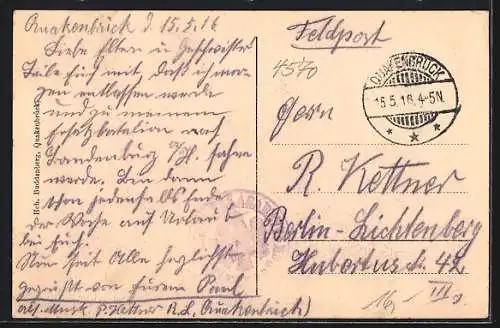 Quakenbrück d. 15.5.16
Liebe Eltern u. Geschwister
Teile Euch mit, daß ich mor-
gen entlassen werde
und zu meinem
Ersatzbatalion nach
Brandenburg a/H. fahren
werde. Bin dann
schon jedenfalls Ende
der Woche auf Urlaub
bei Euch.
Nun seit Alle herzlichst
gegrüßt von Eurem Paul
Abs. Musk. P. Kettner R.L. Quakenbrück)
Heh. Buddenberg, Quakenbrück
Feldpost
4570
QUAKENBRÜCK
15.5.16. 4-5N.
Herrn
R. Kettner
Berlin-Lichtenberg
Hubertusstr. 42
III
16,-